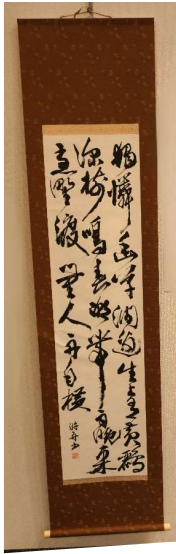 獨憐幽草澗邊生上有黄鸝
深樹鳴春潮帶雨晚来
急野渡無人舟自横